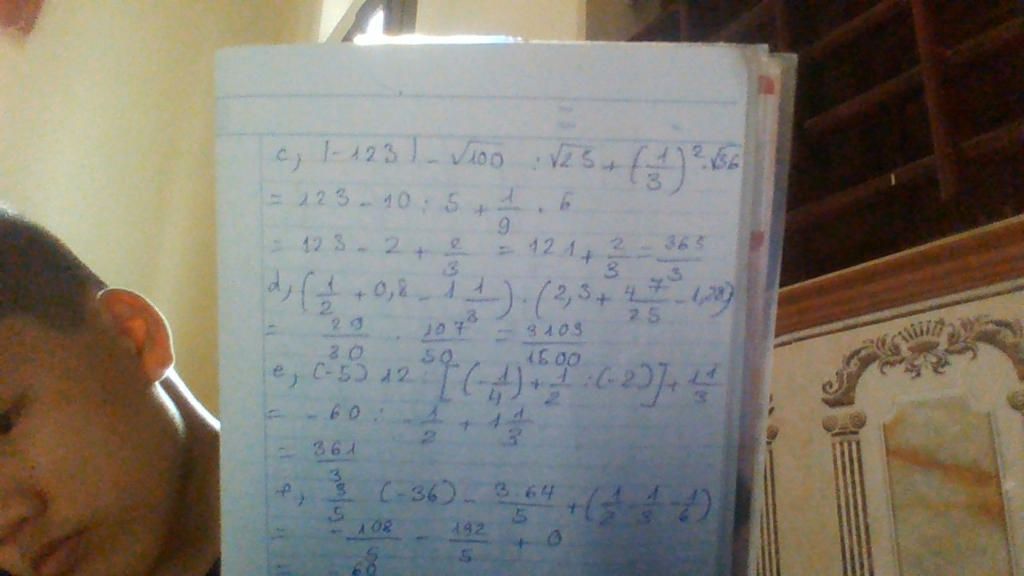 c, |-123| - √100 : √25 + (1/3)² . √36
= 123 - 10 : 5 + 1/9 . 6
= 123 - 2 + 2/3 = 121 + 2/3 = 365/3
d, (1/2 + 0,8 - 1 1/3) . (2,3 + 4 7/25 - 1,28)
= 29/30 . 107/50 = 3103/1500
e, (-5) 12 : [(-1/4) + 1/2 : (-2)] + 1 1/3
= -60 : -1/2 + 1 1/3
= 361/3
f, 3/5 (-36) - 3.64/5 + (1/2 - 1/3 - 1/6)
= -108/5 - 192/5 + 0
= -60